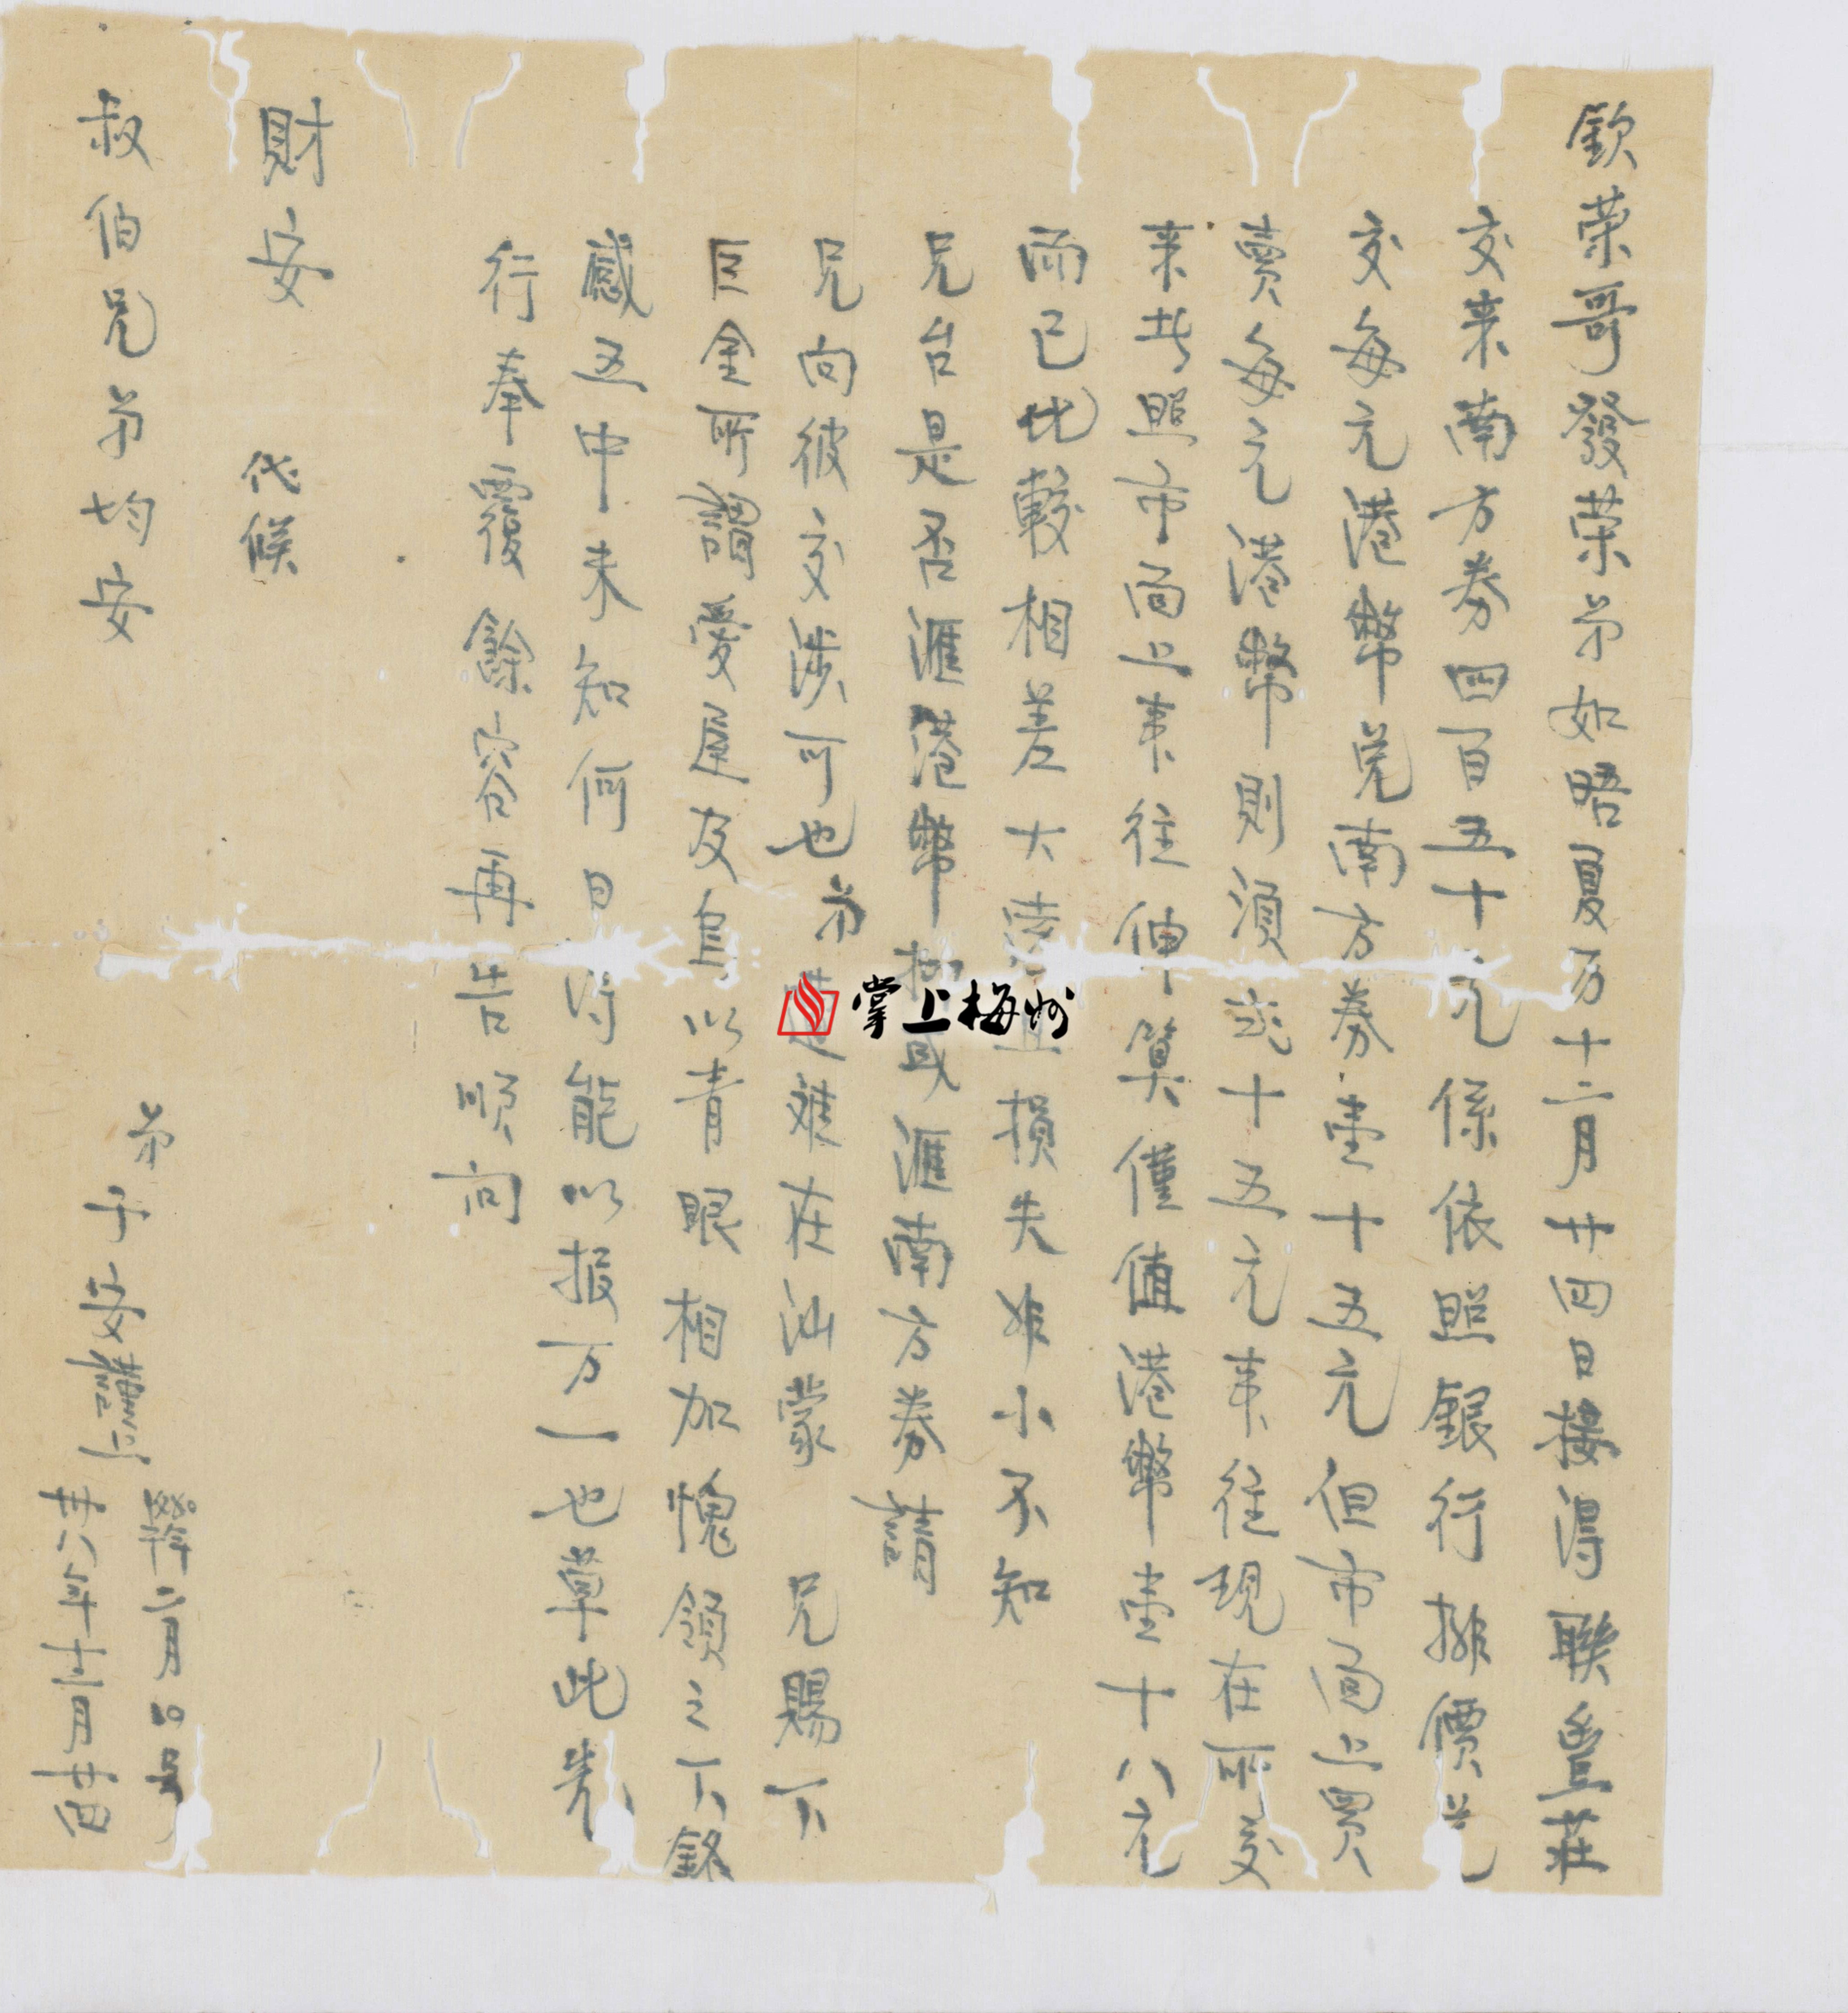 欽荣哥發荣弟如晤夏历十二月廿四日接得聯豊莊
交来南方券四百五十元係依照銀行排價
交每元港幣兑南方券壹十五元但市面上買
賣每元港幣則須式十五元来往現在所交
来者照市面上来往伸算僅值港幣壹十八元
而已比較相差大 損失非小不知
兄台是否滙港幣 或滙南方券請
兄向彼交涉可也弟 难在汕蒙 兄賜下
巨金所謂愛屋及烏以青眼相加愧領之下銘
感五中未知何日得能以报万一也草此先
行奉覆餘容再告順问
財安 代候
叔伯兄弟均安
弟 子安謹上
舊 二月 号
卅八年十二月廿四
掌上梅州